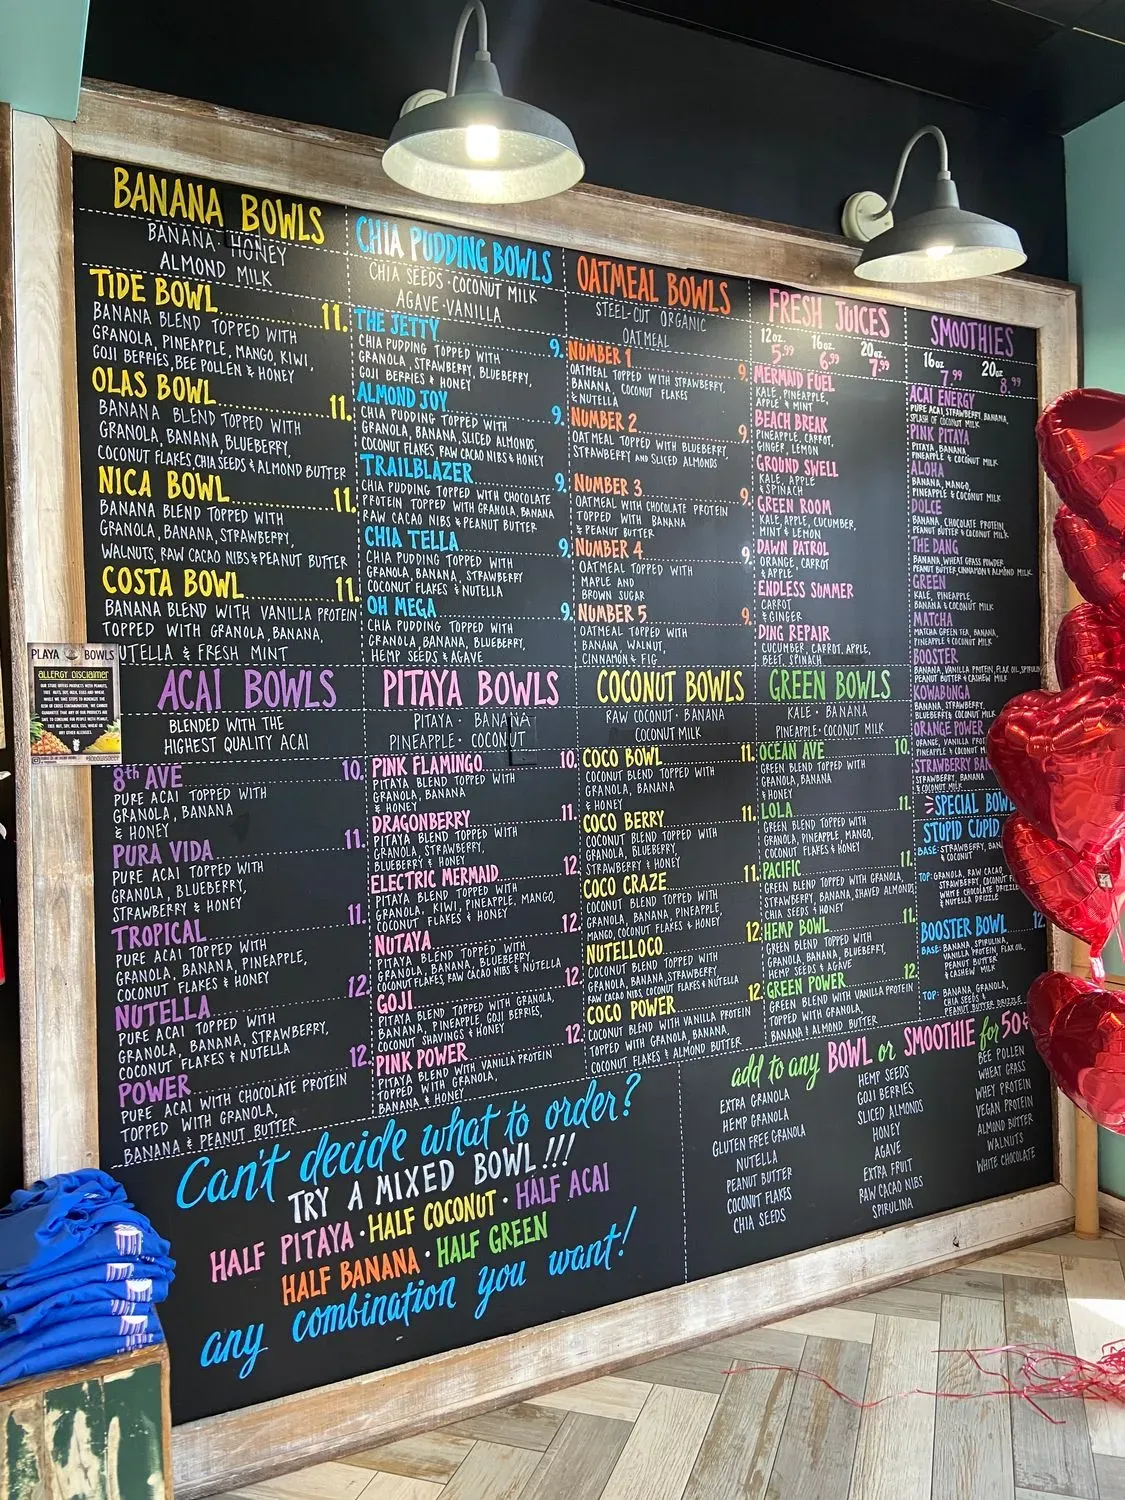 BANANA BOWLS
BANANA · HONEY
ALMOND MILK
TIDE BOWL 11.
BANANA BLEND TOPPED WITH
GRANOLA, PINEAPPLE, MANGO, KIWI,
GOJI BERRIES, BEE POLLEN & HONEY
OLAS BOWL 11.
BANANA BLEND TOPPED WITH
GRANOLA, BANANA, BLUEBERRY,
COCONUT FLAKES, CHIA SEEDS & ALMOND BUTTER
NICA BOWL 11.
BANANA BLEND TOPPED WITH
GRANOLA, BANANA, STRAWBERRY,
WALNUTS, RAW CACAO NIBS & PEANUT BUTTER
COSTA BOWL 11.
BANANA BLEND WITH VANILLA PROTEIN
TOPPED WITH GRANOLA, BANANA,
UTELLA & FRESH MINT
CHIA PUDDING BOWLS
CHIA SEEDS · COCONUT MILK
AGAVE · VANILLA
THE JETTY 9.
CHIA PUDDING TOPPED WITH
GRANOLA, STRAWBERRY, BLUEBERRY,
GOJI BERRIES & HONEY
ALMOND JOY 9.
CHIA PUDDING TOPPED WITH
GRANOLA, BANANA, SLICED ALMONDS,
COCONUT FLAKES, RAW CACAO NIBS & HONEY
TRAILBLAZER 9.
CHIA PUDDING TOPPED WITH CHOCOLATE
PROTEIN TOPPED WITH GRANOLA, BANANA
RAW CACAO NIBS & PEANUT BUTTER
CHIA TELLA 9.
CHIA PUDDING TOPPED WITH
GRANOLA, BANANA, STRAWBERRY
COCONUT FLAKES & NUTELLA
OH MEGA 9.
CHIA PUDDING TOPPED WITH
GRANOLA, BANANA, BLUEBERRY,
HEMP SEEDS & AGAVE
OATMEAL BOWLS
STEEL-CUT ORGANIC
OATMEAL
NUMBER 1 9.
OATMEAL TOPPED WITH STRAWBERRY,
BANANA, COCONUT FLAKES
& NUTELLA
NUMBER 2 9.
OATMEAL TOPPED WITH BLUEBERRY,
STRAWBERRY AND SLICED ALMONDS
NUMBER 3 9.
OATMEAL WITH CHOCOLATE PROTEIN
TOPPED WITH BANANA
& PEANUT BUTTER
NUMBER 4 9.
OATMEAL TOPPED WITH
MAPLE AND
BROWN SUGAR
NUMBER 5 9.
OATMEAL TOPPED WITH
BANANA, WALNUT,
CINNAMON & FIG
FRESH JUICES
12oz. 16oz. 20oz.
5.99 6.99 7.99
MERMAID FUEL
KALE, PINEAPPLE,
APPLE & MINT
BEACH BREAK
PINEAPPLE, CARROT,
GINGER, LEMON
GROUND SWELL
KALE, APPLE
& SPINACH
GREEN ROOM
KALE, APPLE, CUCUMBER,
MINT & LEMON
DAWN PATROL
ORANGE, CARROT
& APPLE
ENDLESS SUMMER
CARROT
& GINGER
DING REPAIR
CUCUMBER, CARROT, APPLE,
BEET, SPINACH
SMOOTHIES
16oz 20oz
7.99 8.99
ACAI ENERGY
PURE ACAI, STRAWBERRY, BANANA,
SPLASH OF COCONUT MILK
PINK PITAYA
PITAYA, BANANA,
PINEAPPLE & COCONUT MILK
ALOHA
BANANA, MANGO,
PINEAPPLE & COCONUT MILK
DOLCE
BANANA, CHOCOLATE PROTEIN,
PEANUT BUTTER & COCONUT MILK
THE DANG
BANANA, WHEAT GRASS POWDER
PEANUT BUTTER, CINNAMON & ALMOND MILK
GREEN
KALE, PINEAPPLE,
BANANA & COCONUT MILK
MATCHA
MATCHA GREEN TEA, BANANA,
PINEAPPLE & COCONUT MILK
BOOSTER
BANANA, VANILLA PROTEIN, FLAX OIL, SPIRULINA
PEANUT BUTTER & CASHEW MILK
KOWABUNGA
BANANA, STRAWBERRY,
BLUEBERRY & COCONUT MILK
ORANGE POWER
ORANGE, VANILLA PROTE
PINEAPPLE & COCONUT M
STRAWBERRY BAN
STRAWBERRY, BANANA
& COCONUT MILK
SPECIAL BOWL
STUPID CUPID
BASE: STRAWBERRY, BAN
& COCONUT
TOP: GRANOLA, RAW CACAO
STRAWBERRY, COCONUT F
WHITE CHOCOLATE DRIZZLE
& NUTELLA DRIZZLE
BOOSTER BOWL 12
BASE: BANANA, SPIRULINA,
VANILLA PROTEIN, FLAX OIL,
PEANUT BUTTER
& CASHEW MILK
TOP: BANANA, GRANOLA,
CHIA SEEDS &
PEANUT BUTTER DRIZZLE
PLAYA BOWLS
ALLERGY DISCLAIMER
ACAI BOWLS
BLENDED WITH THE
HIGHEST QUALITY ACAI
8th AVE 10.
PURE ACAI TOPPED WITH
GRANOLA, BANANA
& HONEY
PURA VIDA 11.
PURE ACAI TOPPED WITH
GRANOLA, BLUEBERRY,
STRAWBERRY & HONEY
TROPICAL 11.
PURE ACAI TOPPED WITH
GRANOLA, BANANA, PINEAPPLE,
COCONUT FLAKES & HONEY
NUTELLA 12.
PURE ACAI TOPPED WITH
GRANOLA, BANANA, STRAWBERRY,
COCONUT FLAKES & NUTELLA
POWER 12.
PURE ACAI WITH CHOCOLATE PROTEIN
TOPPED WITH GRANOLA,
BANANA & PEANUT BUTTER
PITAYA BOWLS
PITAYA · BANANA
PINEAPPLE · COCONUT
PINK FLAMINGO 10.
PITAYA BLEND TOPPED WITH
GRANOLA, BANANA
& HONEY
DRAGONBERRY 11.
PITAYA BLEND TOPPED WITH
GRANOLA, STRAWBERRY,
BLUEBERRY & HONEY
ELECTRIC MERMAID 12.
PITAYA BLEND TOPPED WITH
GRANOLA, KIWI, PINEAPPLE, MANGO,
COCONUT FLAKES & HONEY
NUTAYA 12.
PITAYA BLEND TOPPED WITH
GRANOLA, BANANA, BLUEBERRY,
COCONUT FLAKES, RAW CACAO NIBS & NUTELLA
GOJI 12.
PITAYA BLEND TOPPED WITH GRANOLA,
BANANA, PINEAPPLE, GOJI BERRIES,
COCONUT SHAVINGS & HONEY
PINK POWER 12.
PITAYA BLEND WITH VANILLA PROTEIN
TOPPED WITH GRANOLA,
BANANA & HONEY
COCONUT BOWLS
RAW COCONUT · BANANA
COCONUT MILK
COCO BOWL 11.
COCONUT BLEND TOPPED WITH
GRANOLA, BANANA
& HONEY
COCO BERRY 11.
COCONUT BLEND TOPPED WITH
GRANOLA, BLUEBERRY,
STRAWBERRY & HONEY
COCO CRAZE 11.
COCONUT BLEND TOPPED WITH
GRANOLA, BANANA, PINEAPPLE
MANGO, COCONUT FLAKES & HONEY
NUTELLOCO 12.
COCONUT BLEND TOPPED WITH
GRANOLA, BANANA, STRAWBERRY,
RAW CACAO NIBS, COCONUT FLAKES & NUTELLA
COCO POWER 12.
COCONUT BLEND WITH VANILLA PROTEIN
TOPPED WITH GRANOLA, BANANA,
COCONUT FLAKES & ALMOND BUTTER
GREEN BOWLS
KALE · BANANA
PINEAPPLE · COCONUT MILK
OCEAN AVE 10.
GREEN BLEND TOPPED WITH
GRANOLA, BANANA
& HONEY
LOLA 11.
GREEN BLEND TOPPED WITH
GRANOLA, PINEAPPLE, MANGO,
COCONUT FLAKES & HONEY
PACIFIC 11.
GREEN BLEND TOPPED WITH GRANOLA,
STRAWBERRY, BANANA, SHAVED ALMONDS
CHIA SEEDS & HONEY
HEMP BOWL 11.
GREEN BLEND TOPPED WITH
GRANOLA, BANANA, BLUEBERRY,
HEMP SEEDS & AGAVE
GREEN POWER 12.
GREEN BLEND WITH VANILLA PROTEIN
TOPPED WITH GRANOLA,
BANANA & ALMOND BUTTER
Can't decide what to order?
TRY A MIXED BOWL!!!
HALF PITAYA · HALF COCONUT · HALF ACAI
HALF BANANA · HALF GREEN
any combination you want!
add to any BOWL or SMOOTHIE for 50¢
EXTRA GRANOLA
HEMP GRANOLA
GLUTEN FREE GRANOLA
NUTELLA
PEANUT BUTTER
COCONUT FLAKES
CHIA SEEDS
HEMP SEEDS
GOJI BERRIES
SLICED ALMONDS
HONEY
AGAVE
EXTRA FRUIT
RAW CACAO NIBS
SPIRULINA
BEE POLLEN
WHEAT GRASS
WHEY PROTEIN
VEGAN PROTEIN
ALMOND BUTTER
WALNUTS
WHITE CHOCOLATE